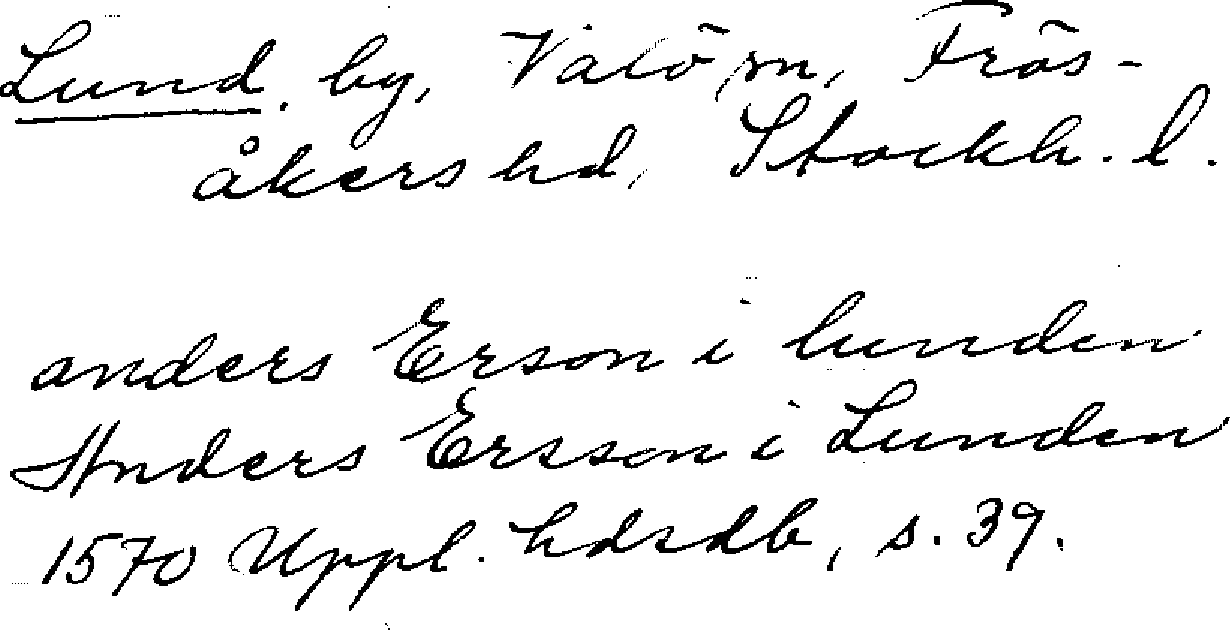 Lund, by, Valö sn, Frös-
åkers hd, Stockh. l.
anders Erson i lunden
Anders Ersson i Lunden
1570 Uppl. hdsdb, s. 39.